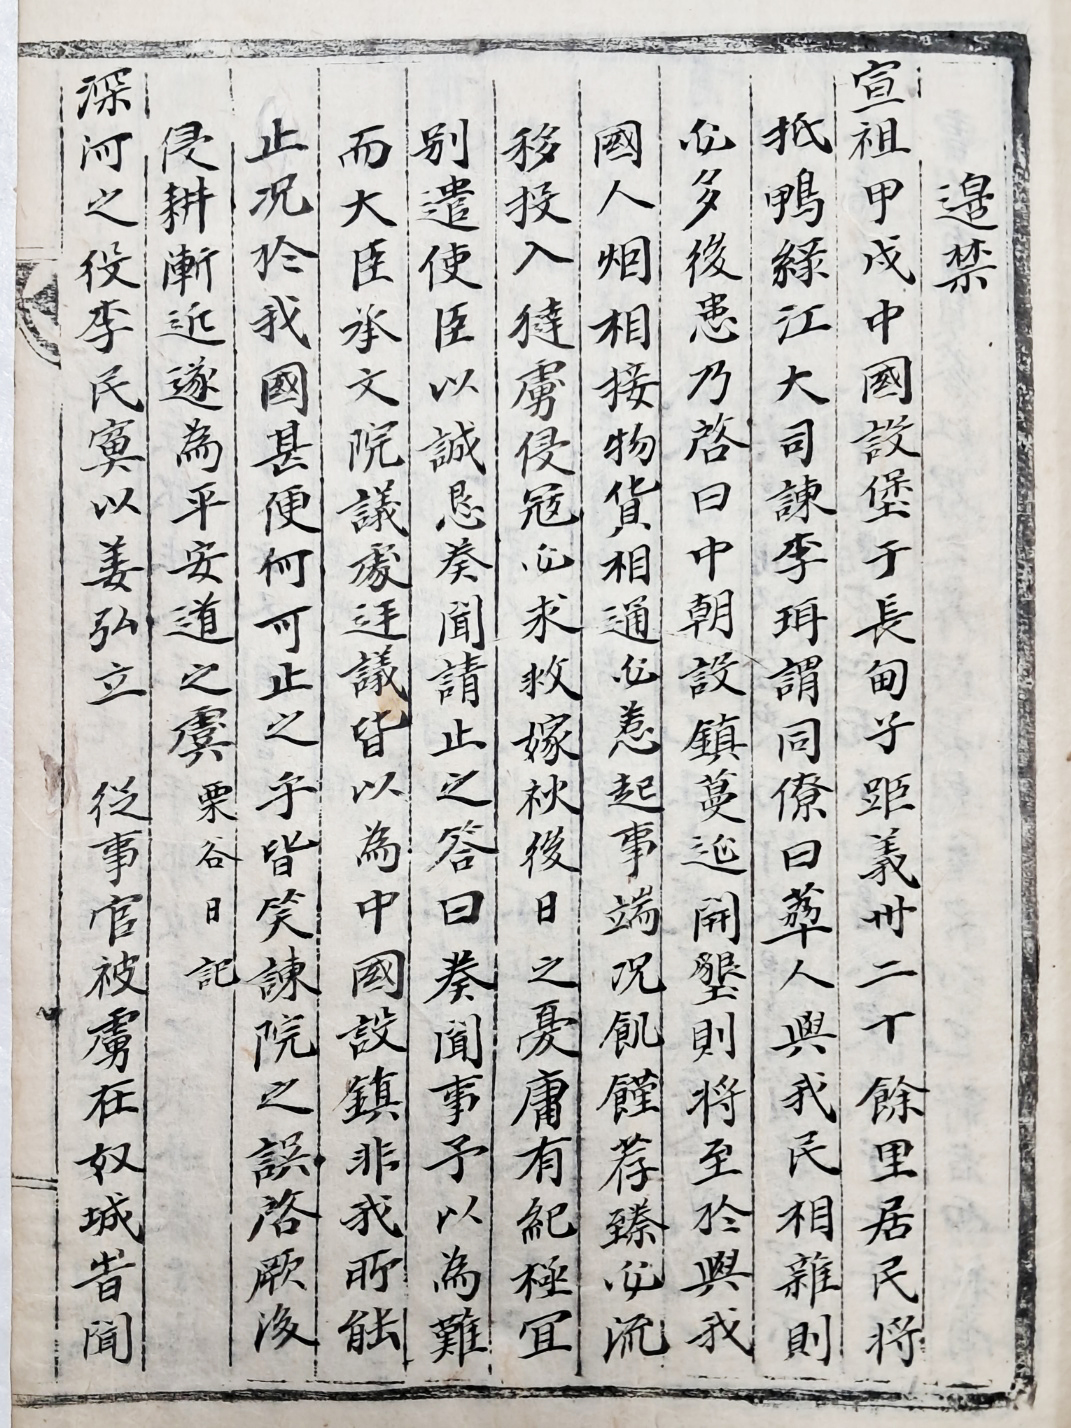 邊禁
宣祖甲戌中國設堡于長甸子距義州二十餘里居民將
抵鴨綠江大司諫李珥謂同僚曰華人與我民相雜則
必多後患乃啓曰中朝設鎮蔓延開墾則將至於與我
國人烟相接物貨相通必惹起事端况飢饉荐臻必流
移投入㺚虜侵冦必求救嫁秧後日之憂庸有紀極宜
別遣使臣以誠恳奏聞請止之答曰奏聞事予以為難
而大臣承文院議處廷議皆以為中國設鎮非我所能
止况於我國甚便何可止之乎皆笑諫院之誤啓厥後
侵耕漸近遂為平安道之虞 栗谷日記
深河之役李民寏以姜弘立 從事官被虜在奴城昔聞